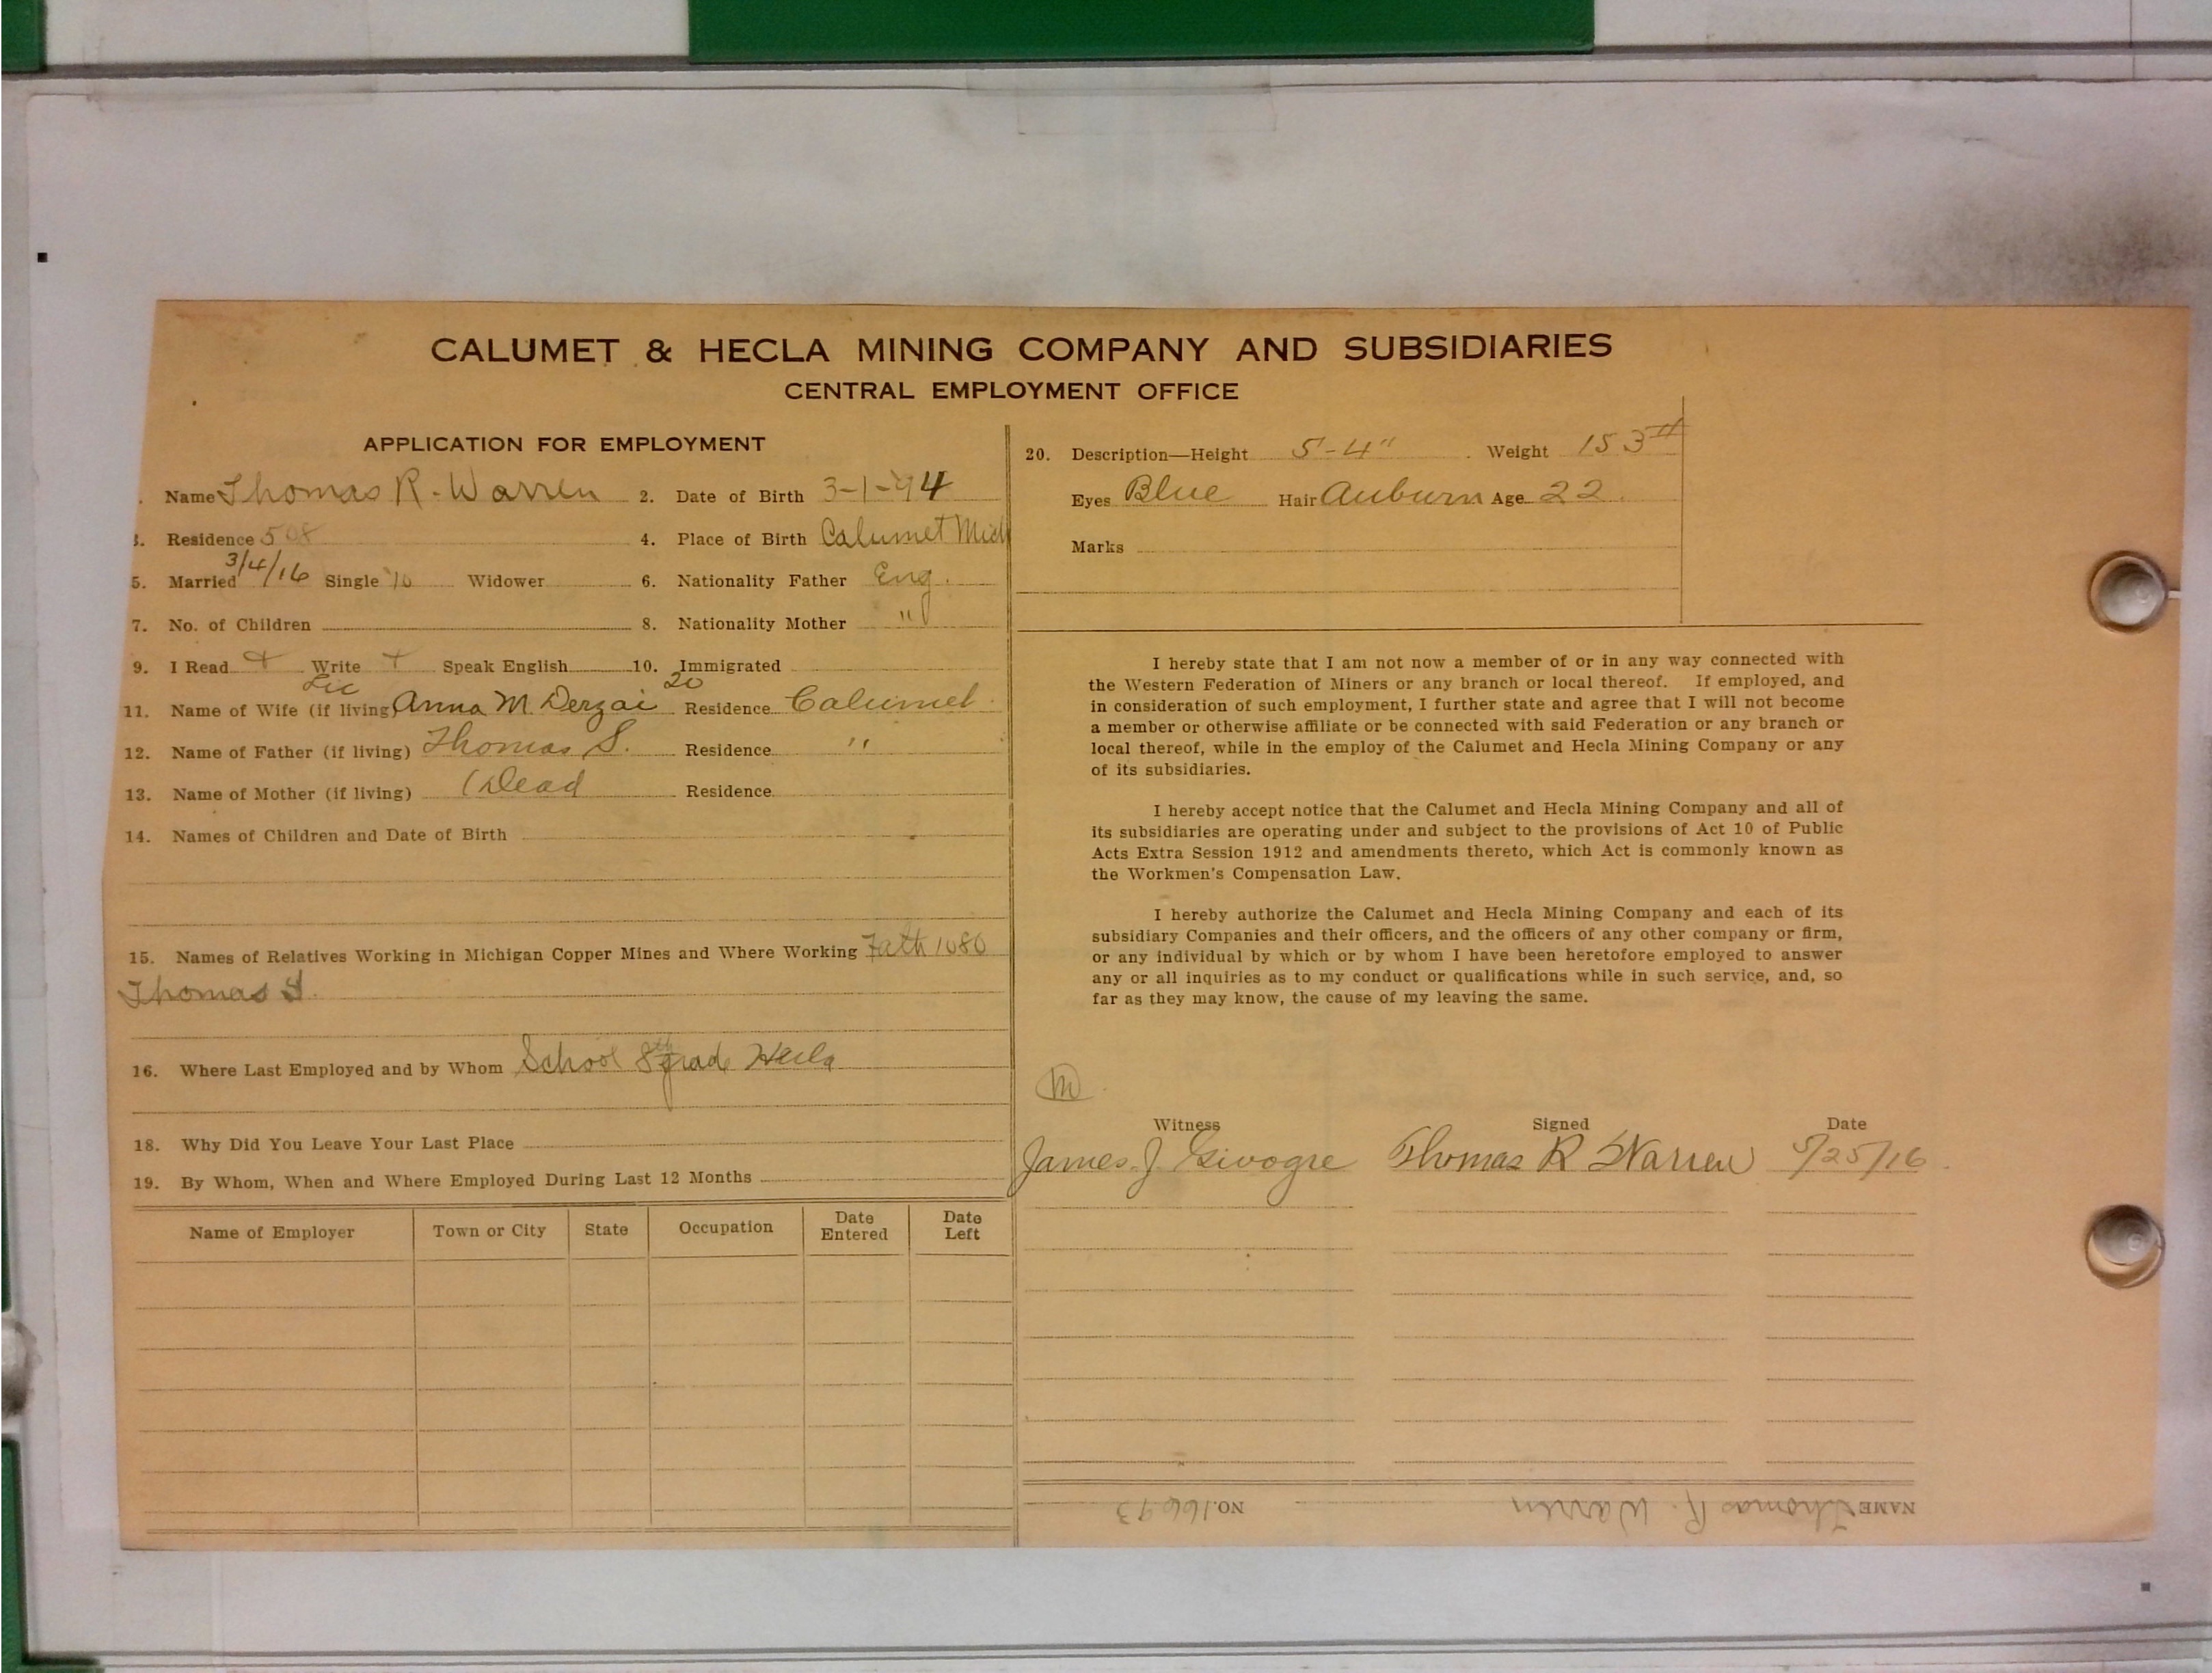 CALUMET & HECLA MINING COMPANY AND SUBSIDIARIES
CENTRAL EMPLOYMENT OFFICE
APPLICATION FOR EMPLOYMENT
. Name Thomas R. Warren 2. Date of Birth 3-1-94
3. Residence 508 4. Place of Birth Calumet Mich
5. Married 3/4/16 Single Widower 6. Nationality Father Eng.
7. No. of Children 8. Nationality Mother "
9. I Read + Write + Speak English 10. Immigrated
20
11. Name of Wife (if living) Anna M. Derzai Residence Calumet.
12. Name of Father (if living) Thomas S. Residence "
13. Name of Mother (if living) Dead Residence
14. Names of Children and Date of Birth
15. Names of Relatives Working in Michigan Copper Mines and Where Working Fath 1080
Thomas S.
16. Where Last Employed and by Whom School 8th grade Hecla
18. Why Did You Leave Your Last Place
19. By Whom, When and Where Employed During Last 12 Months
Name of Employer Town or City State Occupation Date Entered Date Left
20. Description—Height 5'-4" Weight 153#
Eyes Blue Hair Auburn Age 22.
Marks
I hereby state that I am not now a member of or in any way connected with
the Western Federation of Miners or any branch or local thereof. If employed, and
in consideration of such employment, I further state and agree that I will not become
a member or otherwise affiliate or be connected with said Federation or any branch or
local thereof, while in the employ of the Calumet and Hecla Mining Company or any
of its subsidiaries.
I hereby accept notice that the Calumet and Hecla Mining Company and all of
its subsidiaries are operating under and subject to the provisions of Act 10 of Public
Acts Extra Session 1912 and amendments thereto, which Act is commonly known as
the Workmen's Compensation Law.
I hereby authorize the Calumet and Hecla Mining Company and each of its
subsidiary Companies and their officers, and the officers of any other company or firm,
or any individual by which or by whom I have been heretofore employed to answer
any or all inquiries as to my conduct or qualifications while in such service, and, so
far as they may know, the cause of my leaving the same.
M
Witness Signed Date
James J. Thomas R Warren 5/25/16.
NAME Thomas R. Warren NO. 16693